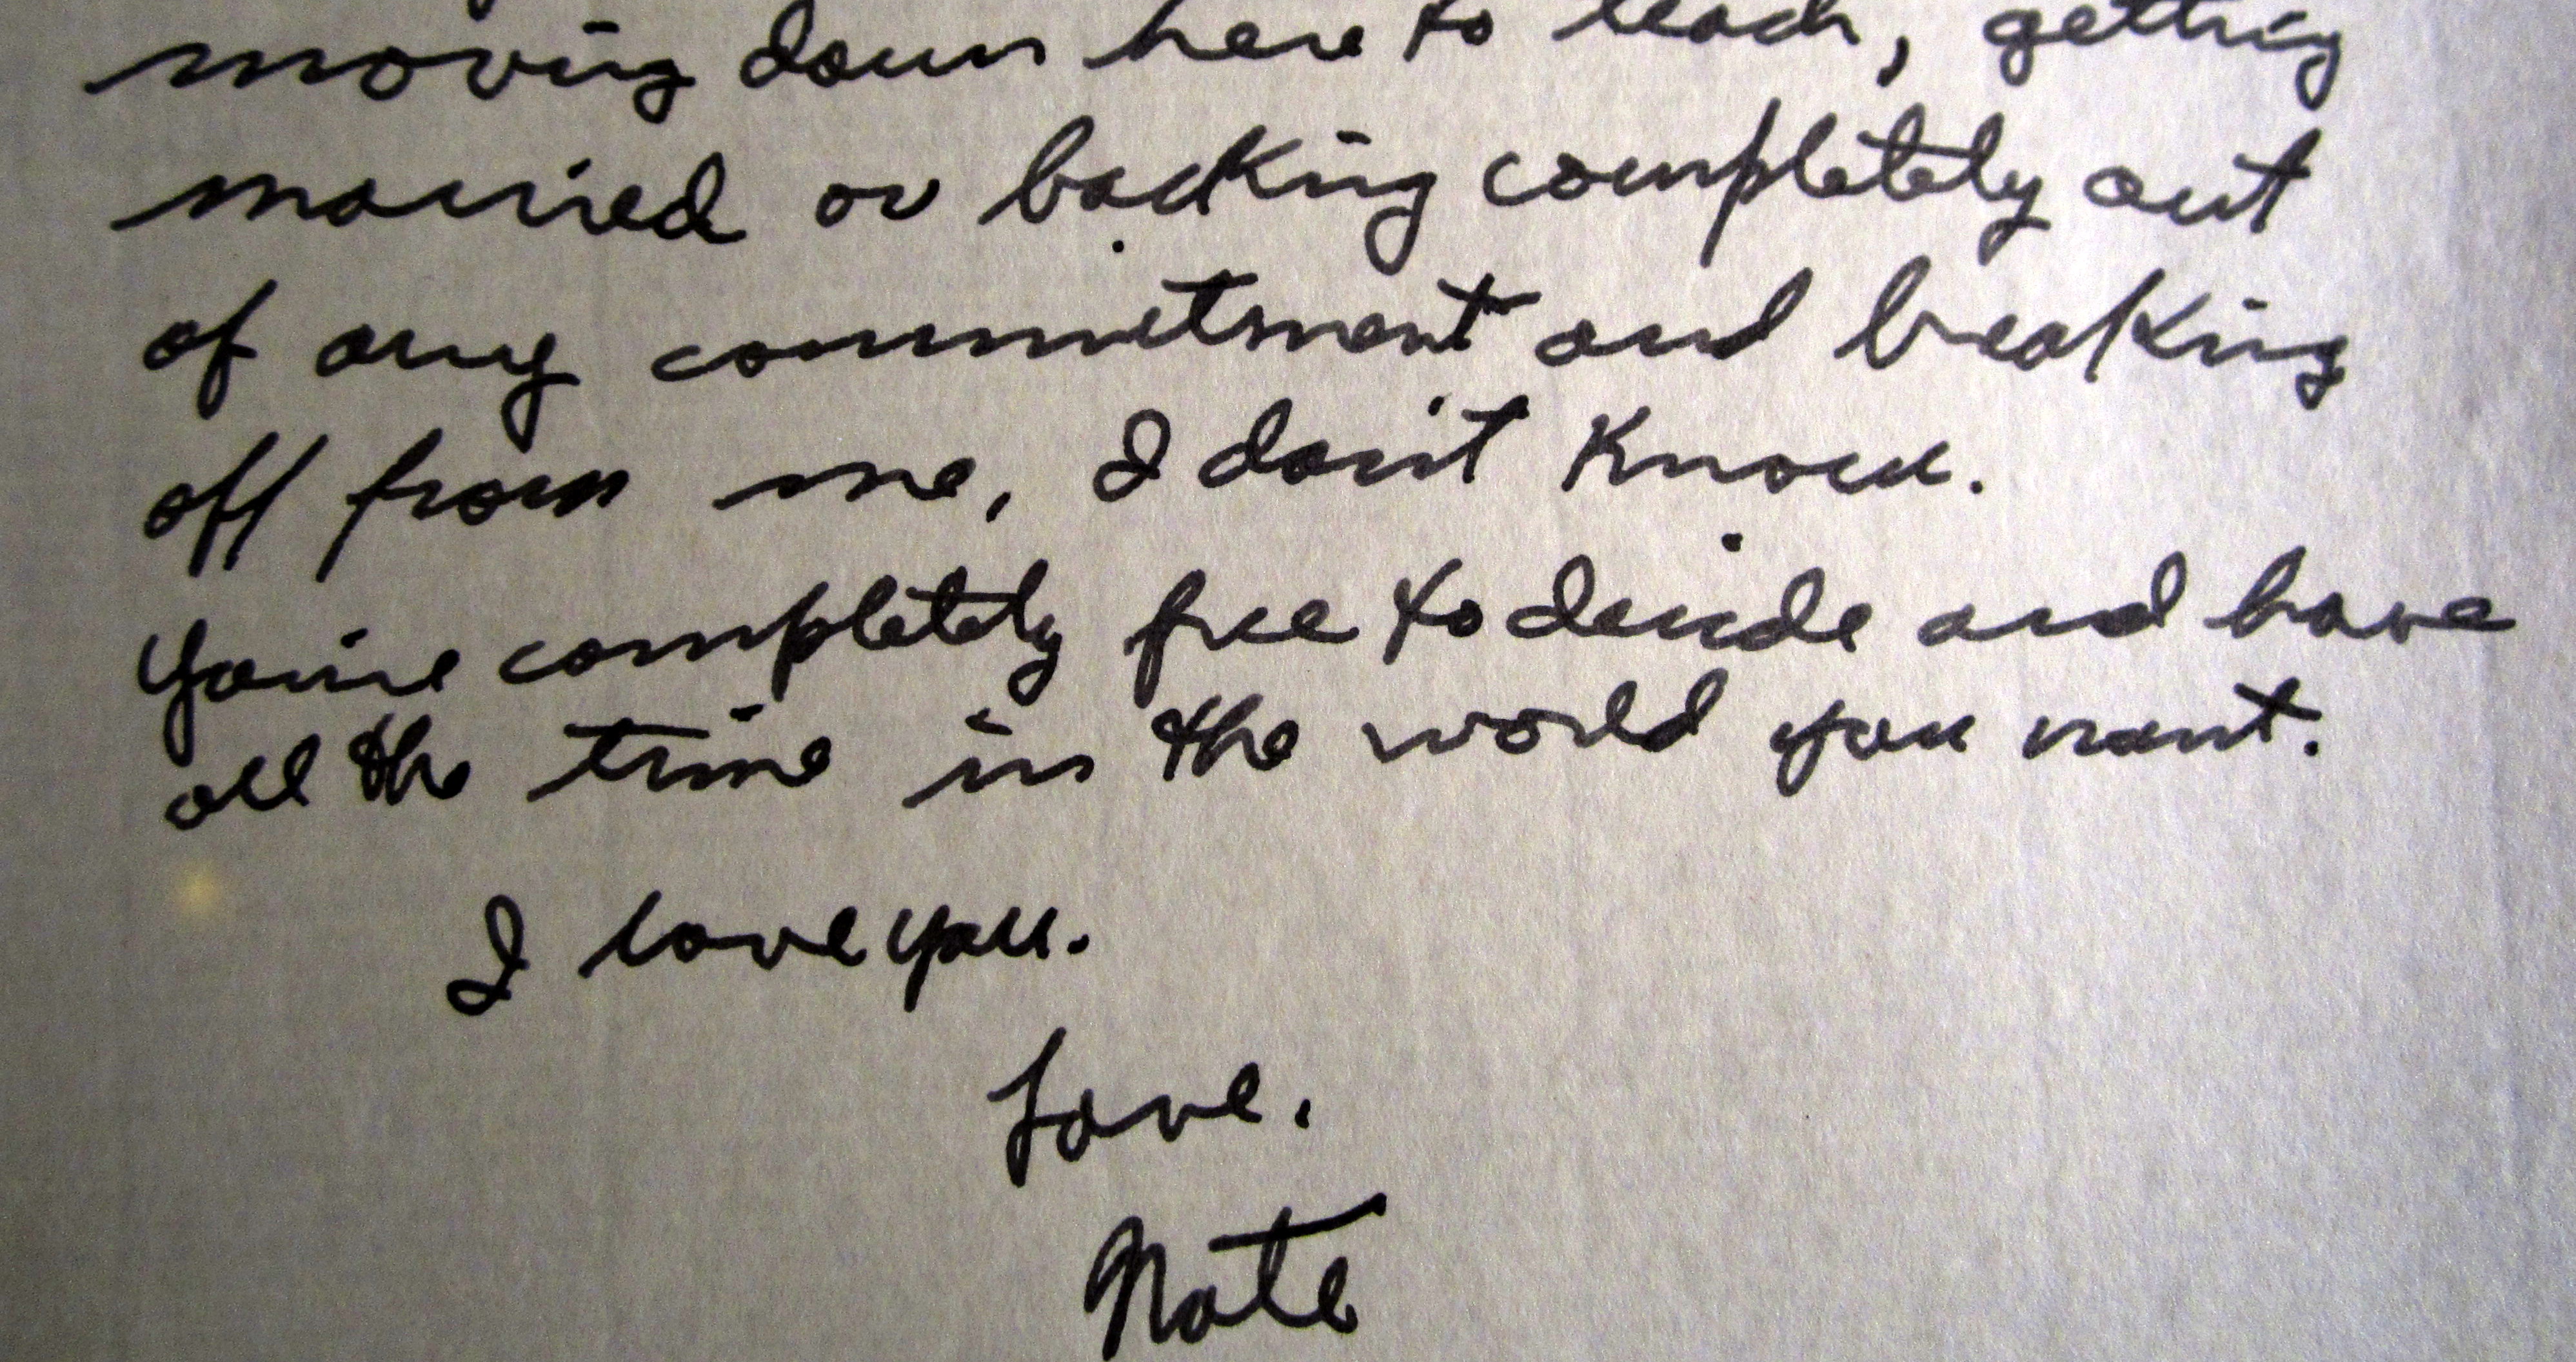 moving down here to teach, getting
married or backing completely out
of any commitment and breaking
off from me, I don't know.
You're completely free to decide and have
all the time in the world you want.
I love you.
Love.
Nate